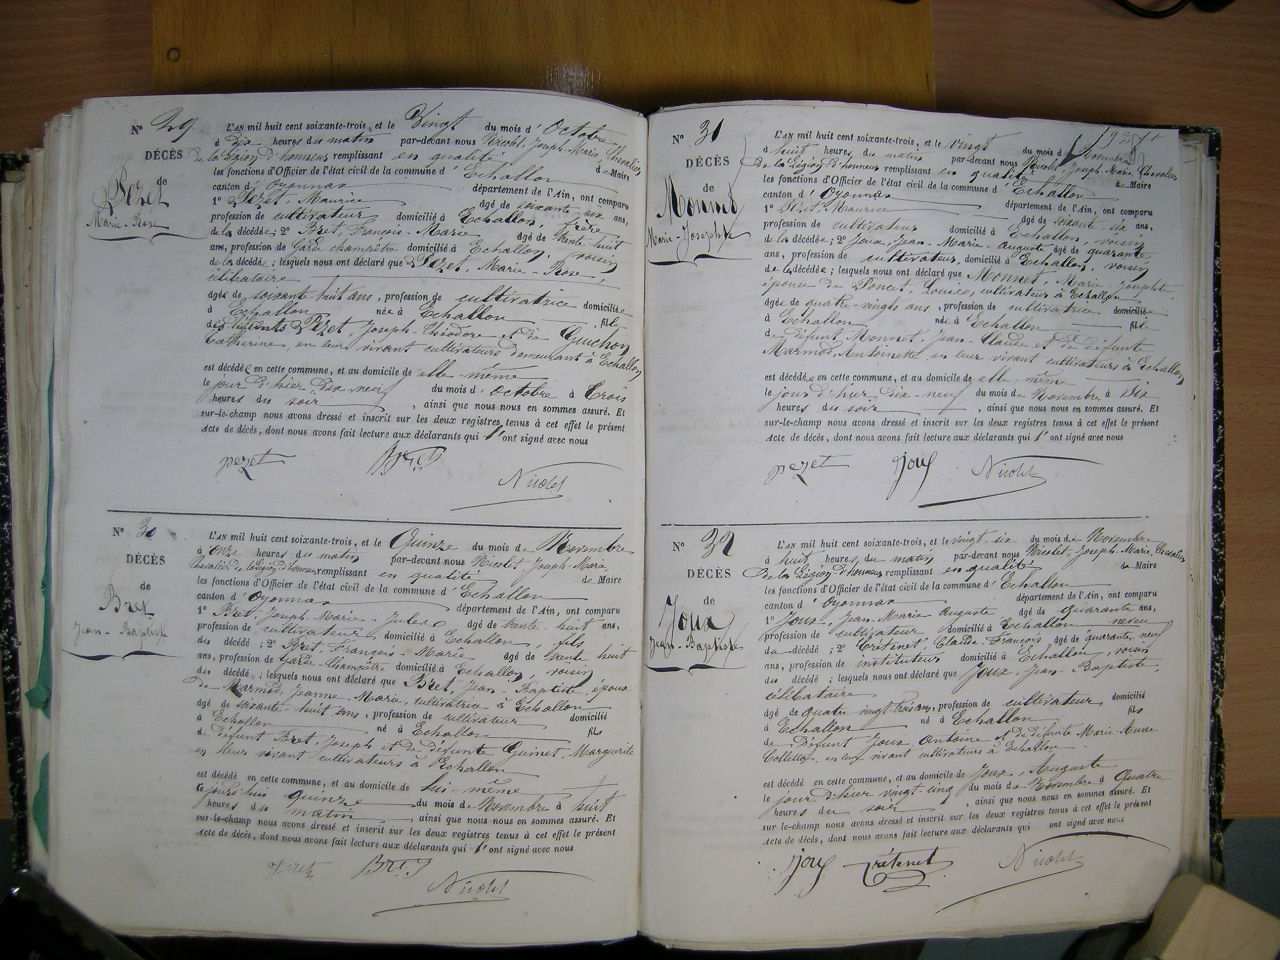 N° 29
DÉCÈS
de
Pezet
Marie-Rose
L'AN mil huit cent soixante-trois, et le Vingt du mois d'Octobre
à dix heures du matin par-devant nous Nicolet, Joseph-Marie, Chevalier
de la Légion d'honneur remplissant en qualité de Maire
les fonctions d'Officier de l'état civil de la commune d'Echallon
canton d'Oyonnax département de l'Ain, ont comparu
1° Pezet, Maurice âgé de soixante-six ans,
profession de cultivateur domicilié à Echallon, frère
de la décédée; 2° Bret, François-Marie âgé de trente-huit
ans, profession de Garde champêtre domicilié à Echallon, voisin
de la décédée; lesquels nous ont déclaré que Pezet, Marie-Rose,
célibataire
âgée de soixante-huit ans, profession de cultivatrice domiciliée
à Echallon née à Echallon fille
des défunts Pezet, Joseph-Théodore et de Guichon
Catherine, en leur vivant cultivateurs demeurant à Echallon
est décédée en cette commune, et au domicile de elle-même
le jour d'hier dix-neuf du mois d'octobre à trois
heures du soir, ainsi que nous nous en sommes assuré. Et
sur-le-champ nous avons dressé et inscrit sur les deux registres tenus à cet effet le présent
Acte de décès, dont nous avons fait lecture aux déclarants qui l'ont signé avec nous
pezet Bret
Nicolet
N° 30
DÉCÈS
de
Bret
Jean-Baptiste
L'AN mil huit cent soixante-trois, et le Quinze du mois de Novembre
à onze heures du matin par-devant nous Nicolet, Joseph-Marie,
Chevalier de la Légion d'honneur remplissant en qualité de Maire
les fonctions d'Officier de l'état civil de la commune d'Echallon
canton d'Oyonnax département de l'Ain, ont comparu
1° Bret, Joseph-Marie-Jules âgé de trente-huit ans,
profession de cultivateur domicilié à Echallon, fils
du décédé; 2° Bret, François-Marie âgé de trente-huit
ans, profession de Garde-Champêtre domicilié à Echallon, voisin
du décédé; lesquels nous ont déclaré que Bret, Jean-Baptiste époux
de Marmod, Jeanne-Marie, cultivatrice à Echallon
âgé de soixante-huit ans, profession de cultivateur domicilié
à Echallon né à Echallon fils
de défunt Bret, Joseph et de défunte Guinet, Marguerite
en leurs vivant cultivateurs à Echallon
est décédé en cette commune, et au domicile de lui-même
le quinze du mois de Novembre à huit
heures du matin, ainsi que nous nous en sommes assuré. Et
sur-le-champ nous avons dressé et inscrit sur les deux registres tenus à cet effet le présent
Acte de décès, dont nous avons fait lecture aux déclarants qui l'ont signé avec nous
Bret
Nicolet
N° 31
DÉCÈS
de
Monnet
Marie-Josephte
L'AN mil huit cent soixante-trois, et le Vingt du mois de Novembre
à huit heures du matin par-devant nous Nicolet, Joseph-Marie, Chevalier
de la Légion d'honneur remplissant en qualité de Maire
les fonctions d'Officier de l'état civil de la commune d'Echallon
canton d'Oyonnax département de l'Ain, ont comparu
1° Pezet, Maurice âgé de soixante-six ans,
profession de cultivateur domicilié à Echallon, voisin
de la décédée; 2° Joux, Jean-Marie-Auguste âgé de quarante
ans, profession de cultivateur, domicilié à Echallon, voisin
de la décédée; lesquels nous ont déclaré que Monnet, Marie Josephte
épouse de Poncet, Louis, cultivateur à Echallon
âgée de quatre-vingts ans, profession de cultivatrice domiciliée
à Echallon née à Echallon fille
de défunt Monnet, Jean-Claude et de défunte
Marmod, Antoinette en leur vivant cultivateurs à Echallon
est décédée en cette commune, et au domicile de elle-même
le jour d'hier dix-neuf du mois de Novembre à Dix
heures du soir, ainsi que nous nous en sommes assuré. Et
sur-le-champ nous avons dressé et inscrit sur les deux registres tenus à cet effet le présent
Acte de décès, dont nous avons fait lecture aux déclarants qui l'ont signé avec nous
pezet Joux Nicolet
N° 32
DÉCÈS
de
Joux
Jean-Baptiste
L'AN mil huit cent soixante-trois, et le vingt-six du mois de Novembre
à huit heures du matin par-devant nous Nicolet, Joseph-Marie, Chevalier
de la Légion d'honneur remplissant en qualité de Maire
les fonctions d'Officier de l'état civil de la commune d'Echallon
canton d'Oyonnax département de l'Ain, ont comparu
1° Joux, Jean-Marie Auguste âgé de quarante ans,
profession de cultivateur domicilié à Echallon neveu
du décédé; 2° Crétinet, Claude-François âgé de quarante-neuf
ans, profession de instituteur domicilié à Echallon, voisin
du décédé; lesquels nous ont déclaré que Joux, Jean-Baptiste,
célibataire
âgé de quatre-vingt-trois ans, profession de cultivateur domicilié
à Echallon né à Echallon fils
de défunt Joux Antoine et de défunte Marie-Anne
en leur vivant cultivateurs à Echallon
est décédé en cette commune, et au domicile de Joux, Auguste
le jour d'hier vingt-cinq du mois de Novembre à Quatre
heures du soir, ainsi que nous nous en sommes assuré. Et
sur-le-champ nous avons dressé et inscrit sur les deux registres tenus à cet effet le présent
Acte de décès, dont nous avons fait lecture aux déclarants qui ont signé avec nous
Joux Crétinet Nicolet